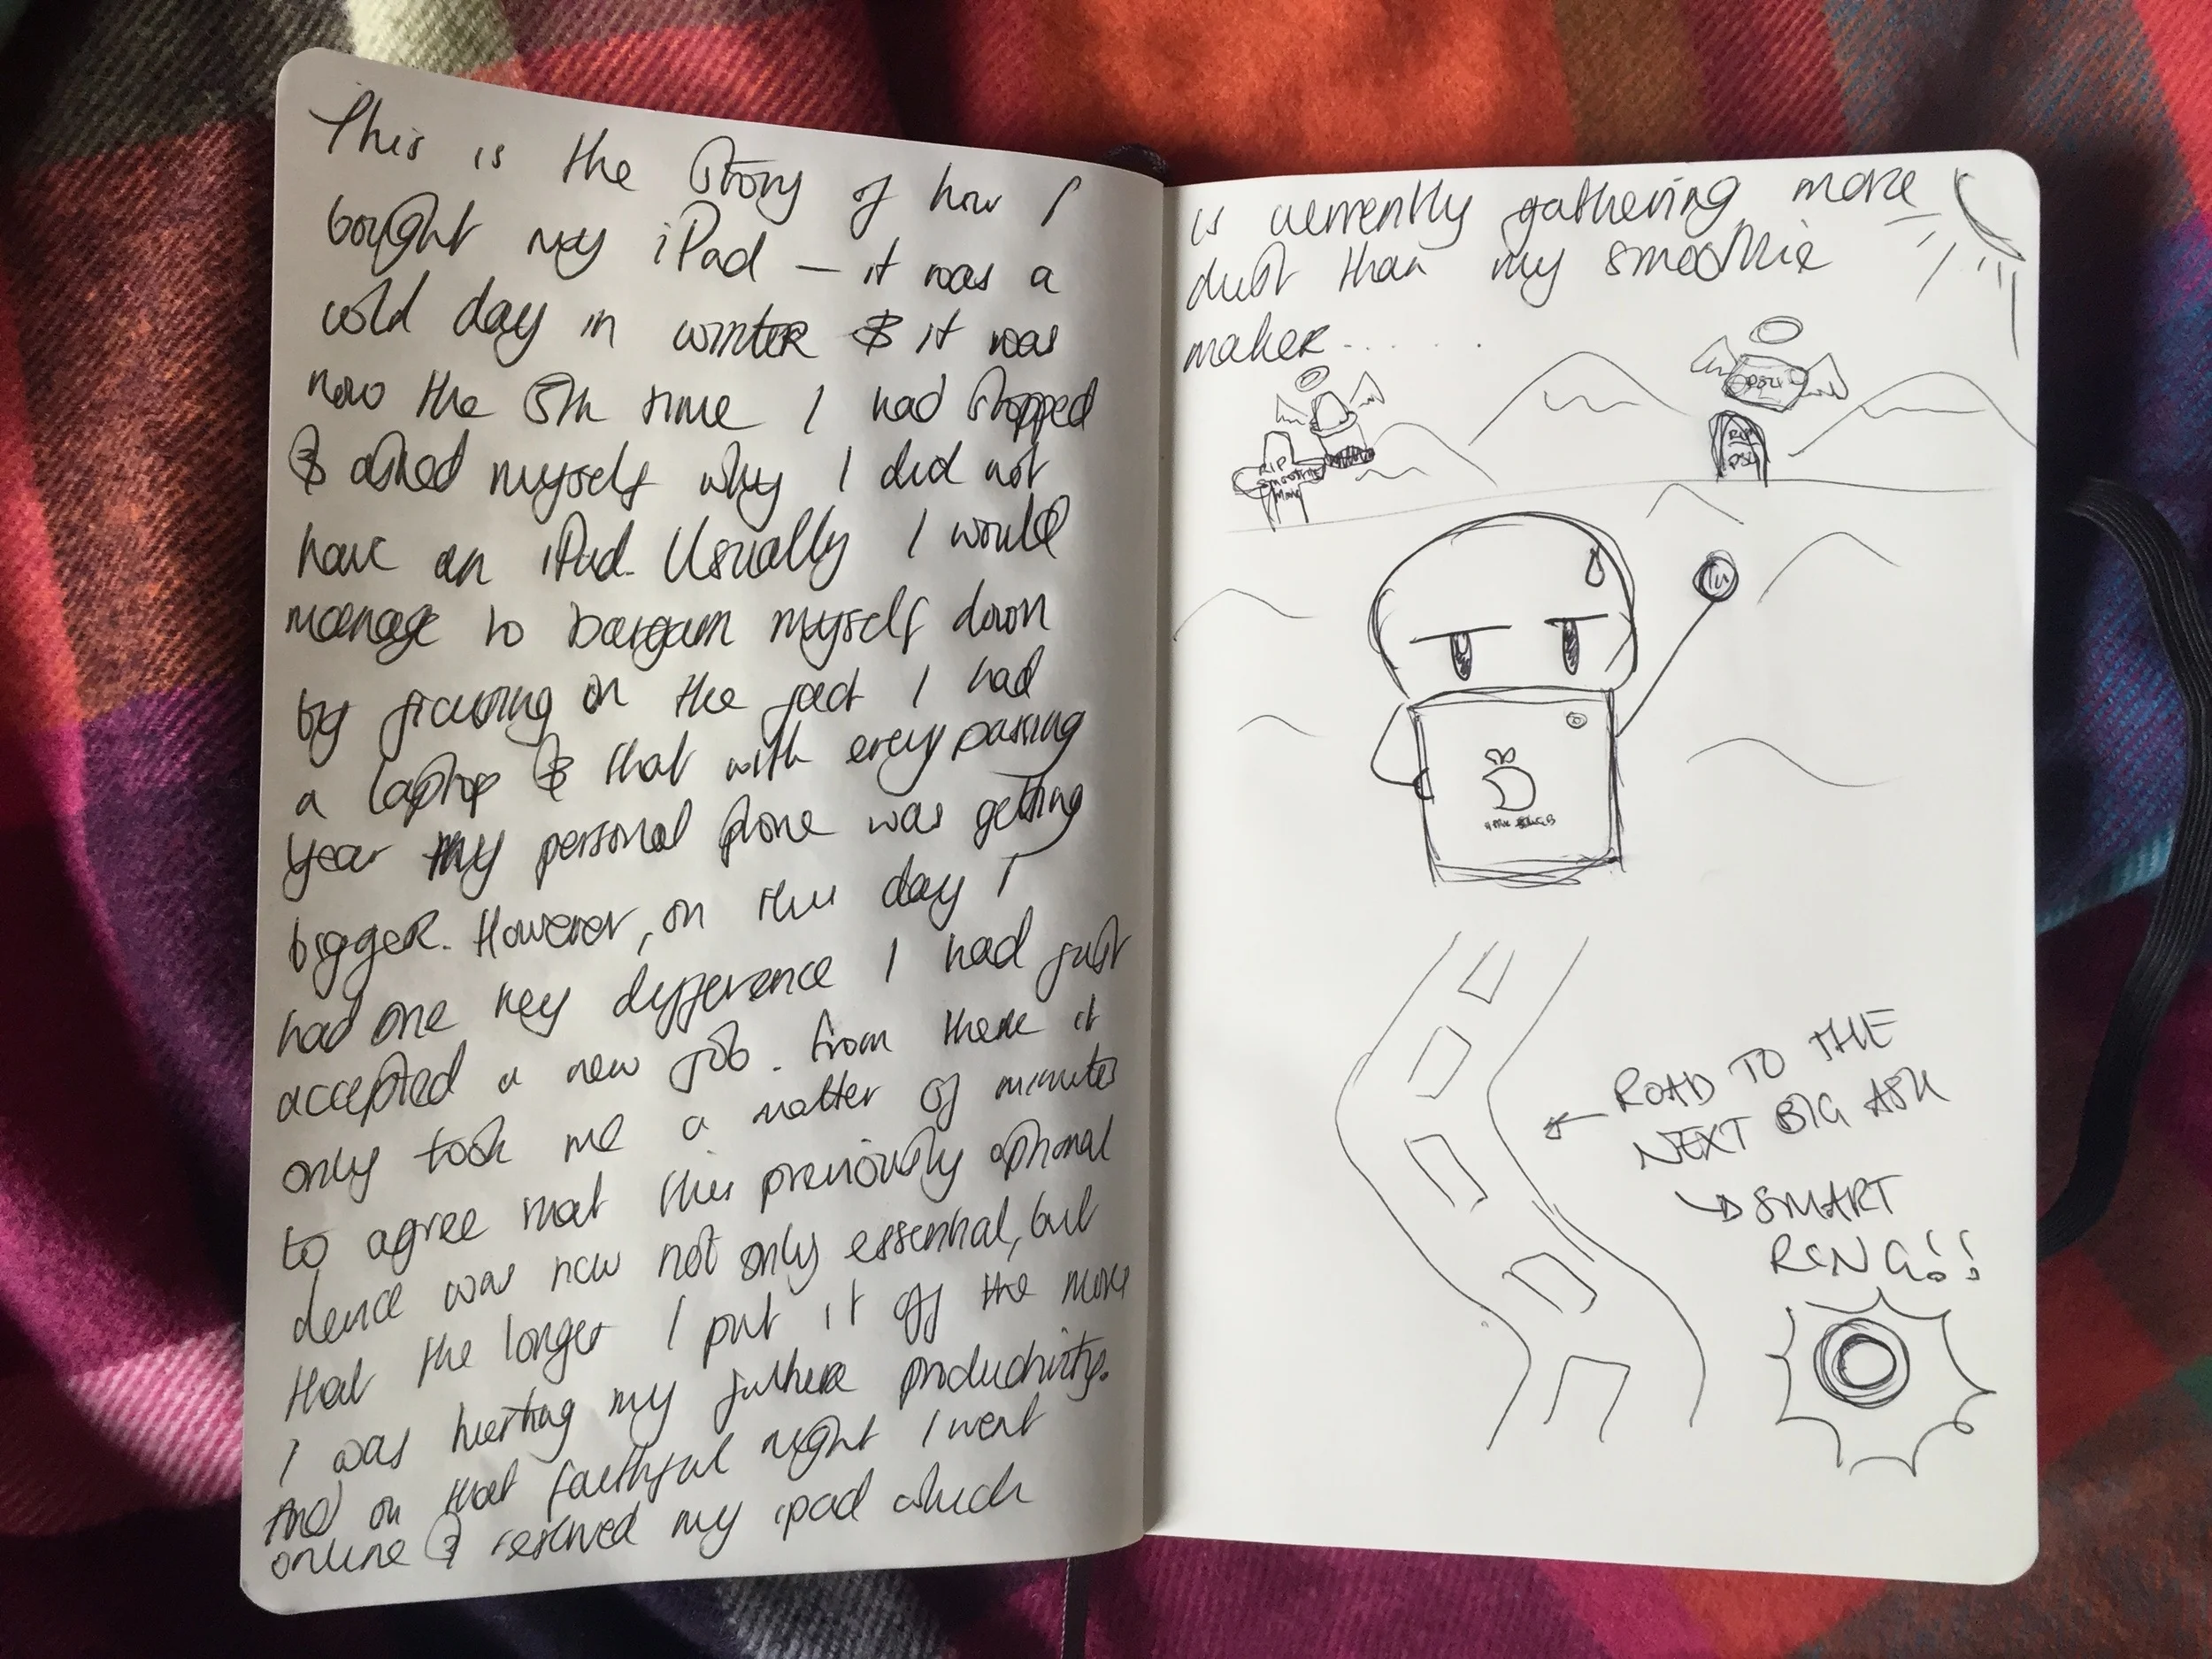 This is the story of how I
bought my iPad — it was a
cold day in winter & it was
now the 5th time I had stopped
& asked myself why I did not
have an iPad. Usually I would
manage to bargain myself down
by focusing on the fact I had
a laptop & that with every passing
year my personal phone was getting
bigger. However, on this day I
had one key difference I had just
accepted a new job. From there it
only took me a matter of minutes
to agree that this previously optional
device was now not only essential, but
that the longer I put it off the more
I was hurting my future productivity.
And on that faithful night I went
online & reserved my ipad which
is currently gathering more
dust than my smoothie
maker......
RIP
SMOOTHIE
RIP
ROAD TO THE
NEXT BIG ASK
SMART
RING!!